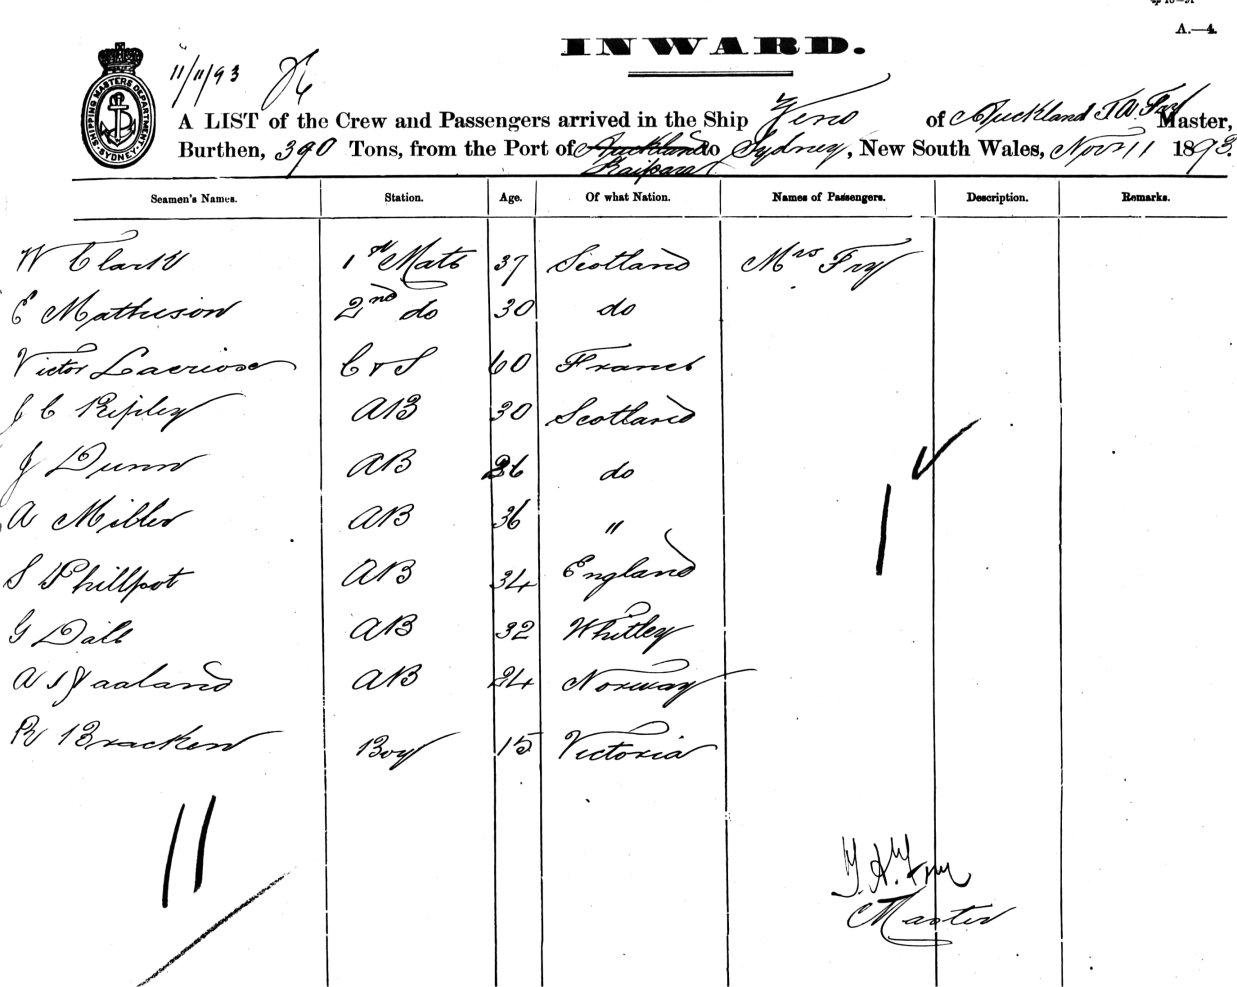 A.—4.
INWARD.
11/11/93
SHIPPING MASTERS DEPARTMENT
SYDNEY
A LIST of the Crew and Passengers arrived in the Ship Zeno of Auckland Fry Master,
Burthen, 390 Tons, from the Port of Auckland Kaipara to Sydney, New South Wales, Novr 11 1893.
Seamen's Names. Station. Age. Of what Nation. Names of Passengers. Description. Remarks.
W Clark 1st Mate 37 Scotland Mrs Fry
E Matheson 2nd do 30 do
Victor Lacriose C & S 60 France
J C Ripley AB 30 Scotland
J Dunn AB 26 do
A Miller AB 36 "
S Phillpot AB 34 England
G Dale AB 32 Whitley
A Haaland AB 24 Norway
R Bracken Boy 15 Victoria
1
11
Fry
Master